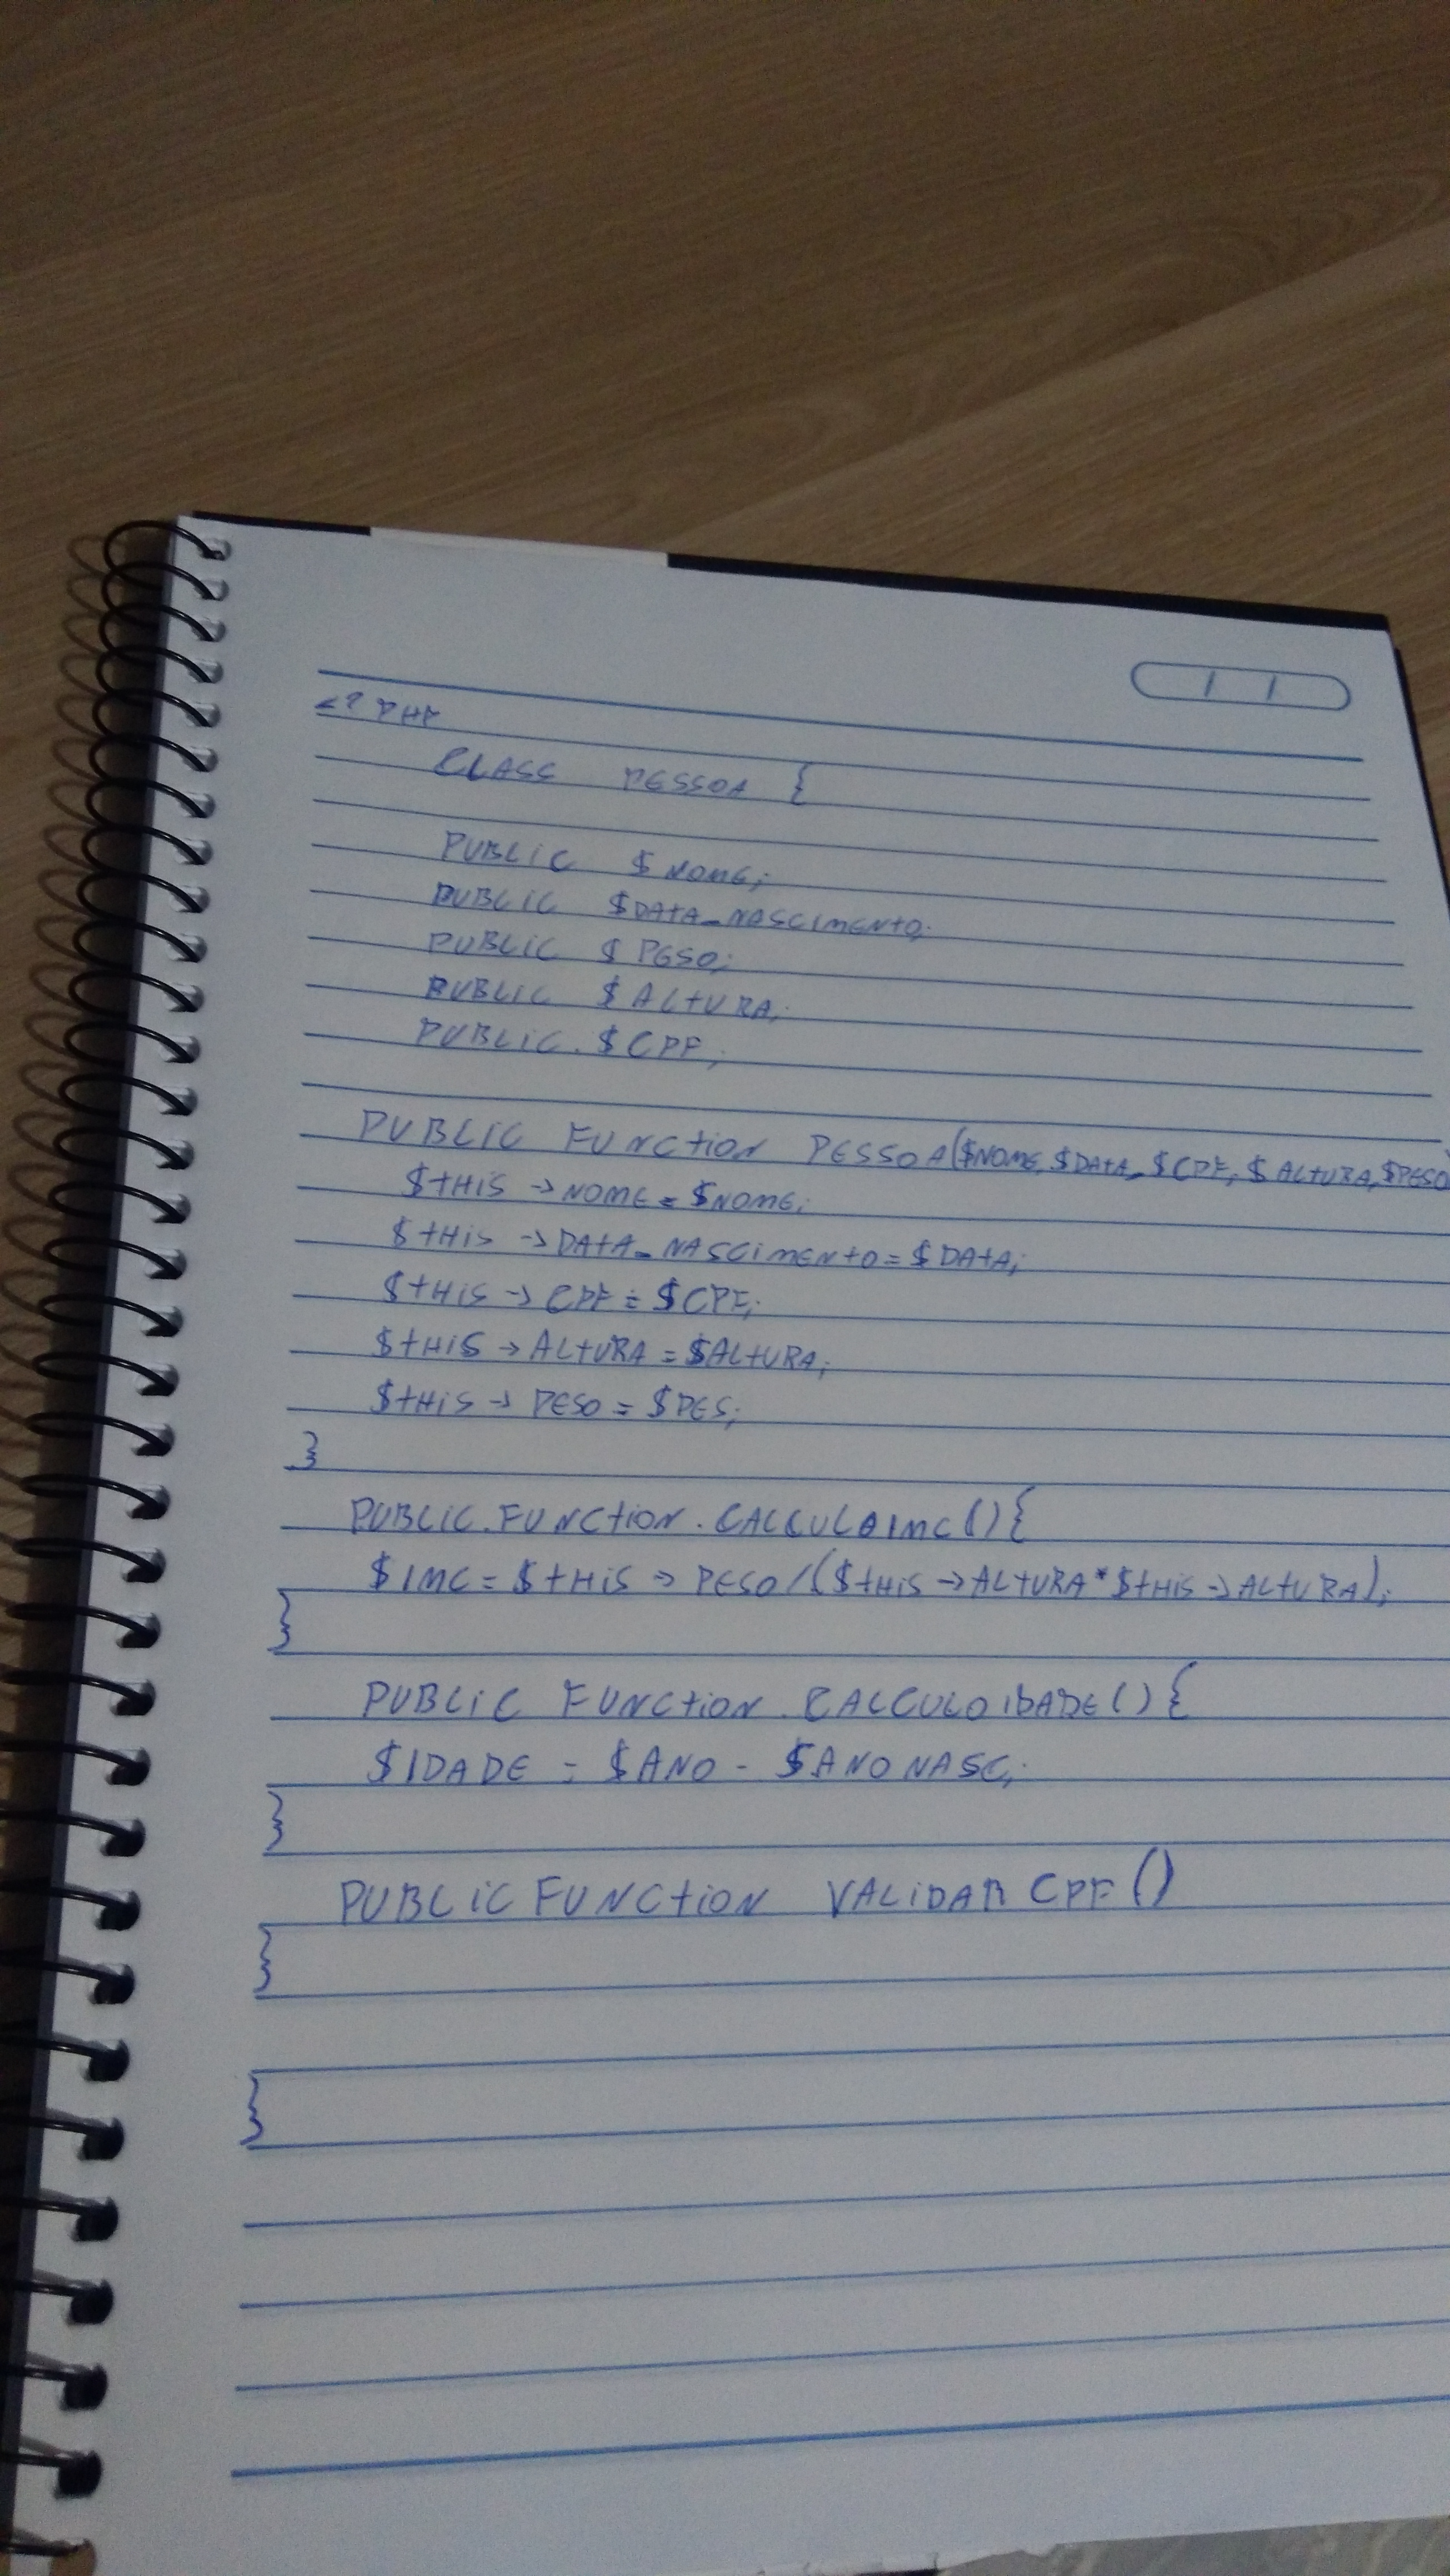 <? PHP
CLASS PESSOA {
PUBLIC $ NOME;
PUBLIC $DATA_NASCIMENTO;
PUBLIC $ PESO;
PUBLIC $ ALTURA;
PUBLIC. $ CPF;
PUBLIC FUNCTION PESSOA($NOME, $DATA, $CPF, $ ALTURA, $PESO)
$THIS -> NOME = $NOME;
$THIS -> DATA_NASCIMENTO = $DATA;
$THIS -> CPF = $CPF;
$THIS -> ALTURA = $ALTURA;
$THIS -> PESO = $PES;
}
PUBLIC.FUNCTION.CALCULAIMC(){
$IMC = $THIS -> PESO/($THIS -> ALTURA*$THIS -> ALTURA);
}
PUBLIC FUNCTION.CALCULOIDADE(){
$IDADE = $ANO - $ANONASC;
}
PUBLIC FUNCTION VALIDAR CPF()
}
}